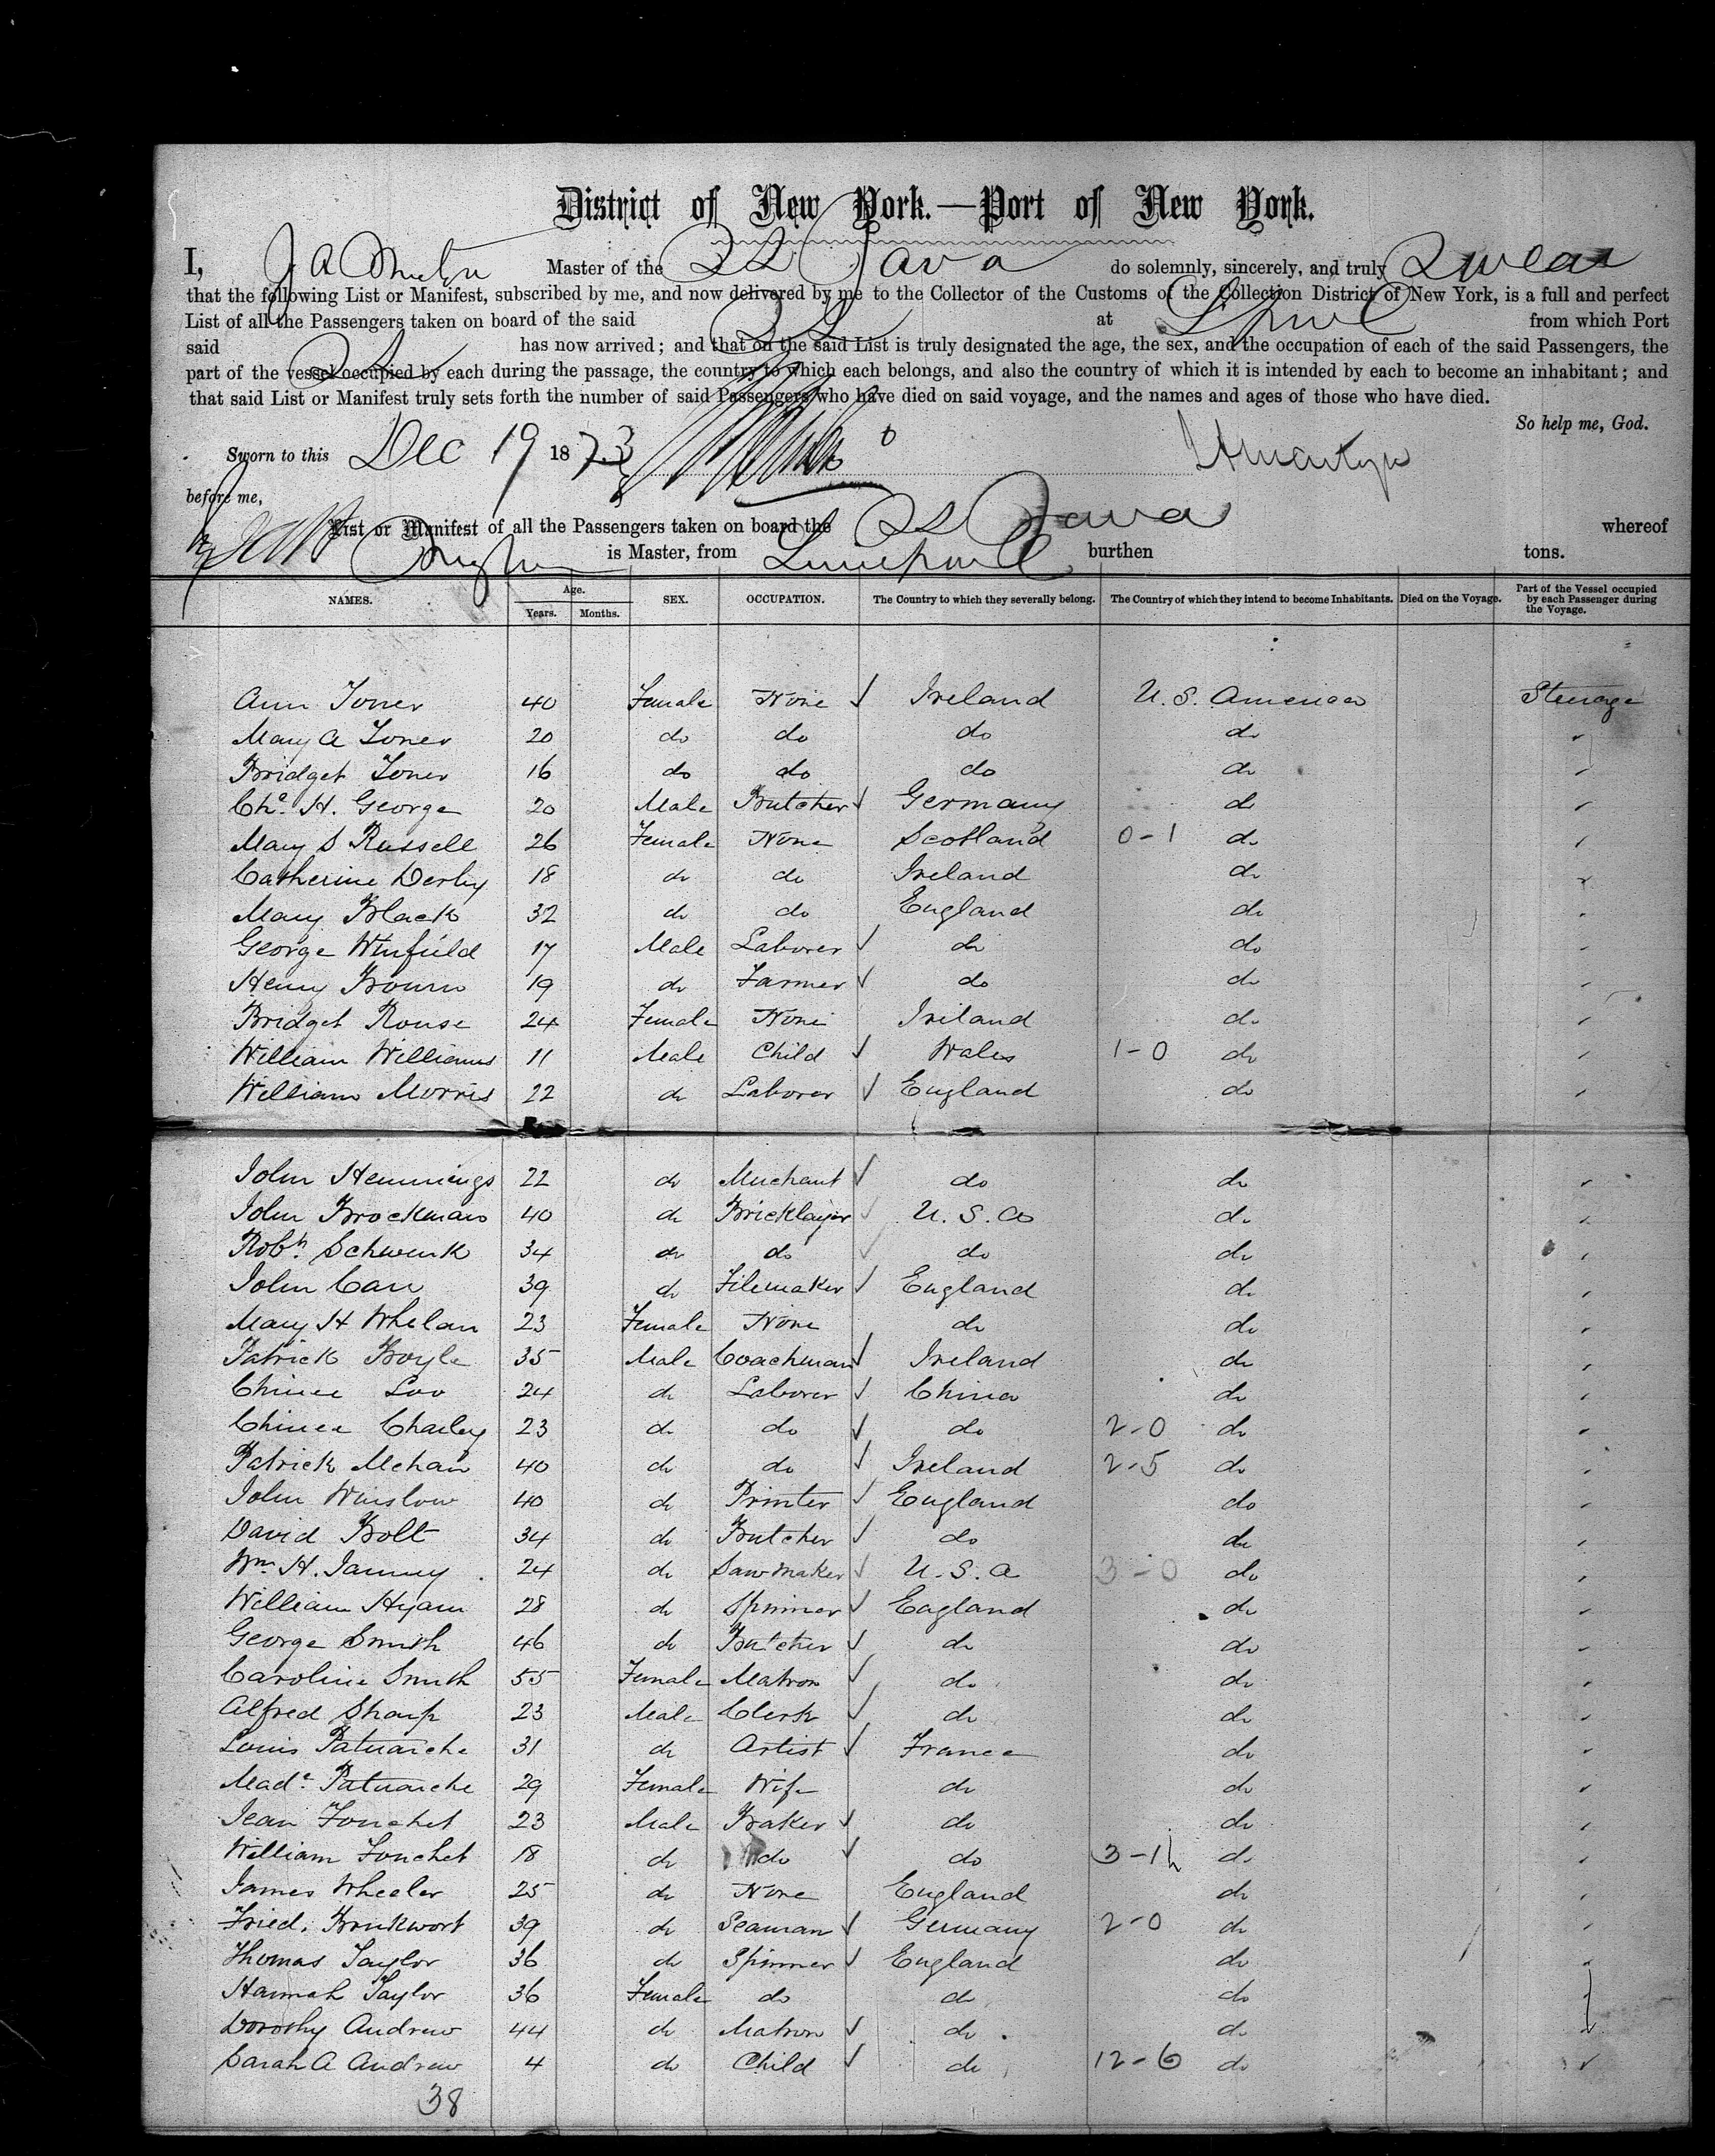 District of New York.—Port of New York.
I, Master of the SS Java do solemnly, sincerely, and truly Swear
that the following List or Manifest, subscribed by me, and now delivered by me to the Collector of the Customs of the Collection District of New York, is a full and perfect
List of all the Passengers taken on board of the said SS at L'pool from which Port
said SS has now arrived; and that on the said List is truly designated the age, the sex, and the occupation of each of the said Passengers, the
part of the vessel occupied by each during the passage, the country to which each belongs, and also the country of which it is intended by each to become an inhabitant; and
that said List or Manifest truly sets forth the number of said Passengers who have died on said voyage, and the names and ages of those who have died.
So help me, God.
Sworn to this Dec 19 1873
before me,
List or Manifest of all the Passengers taken on board the SS Java whereof
is Master, from Liverpool burthen tons.
NAMES. Age. Years. Months. SEX. OCCUPATION. The Country to which they severally belong. The Country of which they intend to become Inhabitants. Died on the Voyage. Part of the Vessel occupied by each Passenger during the Voyage.
Ann Toner 40 Female None Ireland U.S. America Steerage
Mary A Toner 20 do do do do
Bridget Toner 16 do do do do
Chs. H. George 20 Male Butcher Germany do
Mary S Russell 26 Female None Scotland 0-1 do
Catherine Derby 18 do do Ireland do
Mary Black 32 do do England do
George Winfield 17 Male Laborer do do
Henry Brown 19 do Farmer do do
Bridget Rouse 24 Female None Ireland do
William Williams 11 Male Child Wales 1-0 do
William Morris 22 do Laborer England do
John Hemmings 22 do Merchant do do
John Brockman 40 do Bricklayer U.S.A do
Robt. Schwenk 34 do do do do
John Carr 39 do Filemaker England do
Mary H Whelan 23 Female None do do
Patrick Boyle 35 Male Coachman Ireland do
Chinee Loo 24 do Laborer China do
Chinee Charley 23 do do do 2-0 do
Patrick Mehan 40 do do Ireland 2-5 do
John Winslow 40 do Printer England do
David Bolt 34 do Butcher do do
Wm. H. 24 do Sawmaker U.S.A 3-0 do
William Hyam 28 do Spinner England do
George Smith 46 do Butcher do do
Caroline Smith 55 Female Matron do do
Alfred Sharp 23 Male Clerk do do
Louis Patuarche 31 do Artist France do
Made. Patuarche 29 Female Wife do do
Jean Fouchet 23 Male Baker do do
William Fouchet 18 do do do 3-1 do
James Wheeler 25 do None England do
Fried. Bonkwort 39 do Seaman Germany 2-0 do
Thomas Taylor 36 do Spinner England do
Hannah Taylor 36 Female do do do
Dorothy Andrew 44 do Matron do do
Sarah A Andrew 4 do Child do 12-6 do
38